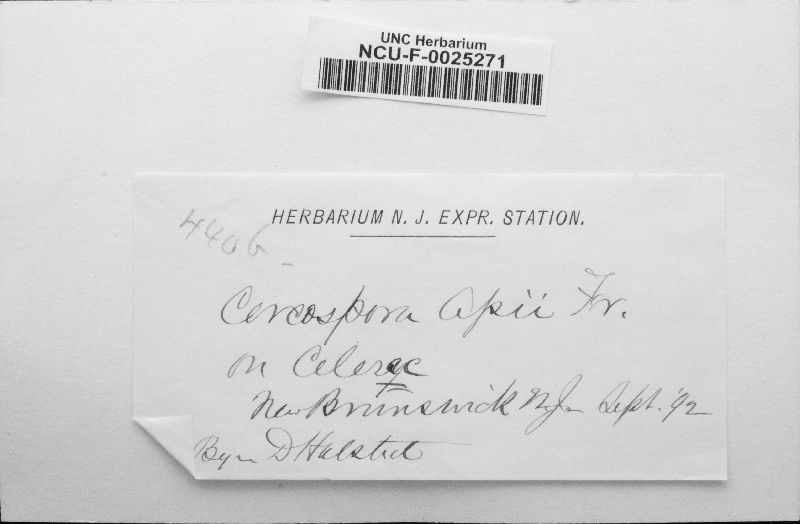 UNC Herbarium
NCU-F-0025271
4406
HERBARIUM N. J. EXPR. STATION.
Cercospora Apii Fr.
on Celery
New Brunswick N.J. Sept. '92
Byron D Halsted